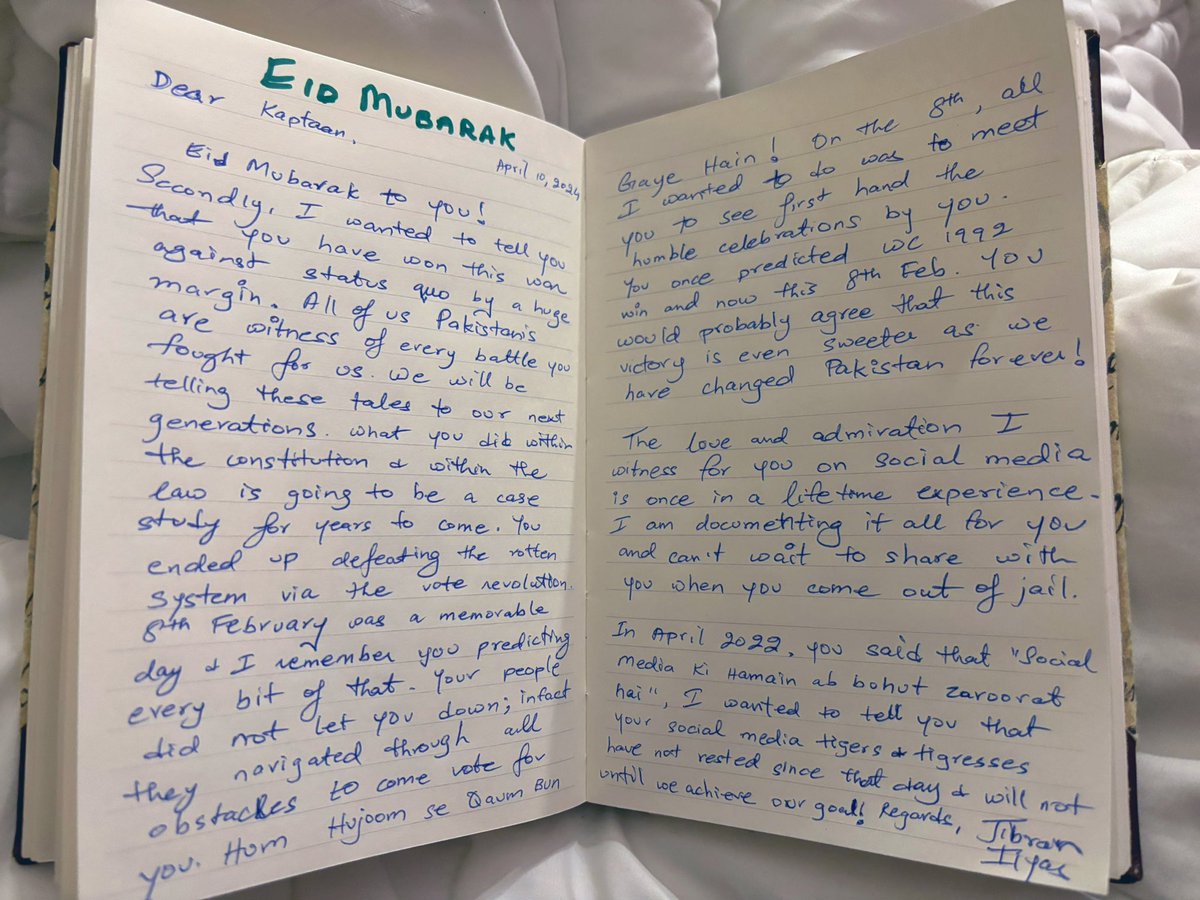 EID MUBARAK
Dear Kaptaan,
April 10, 2024
Eid Mubarak to you!
Secondly, I wanted to tell you
that you have won this war
against status quo by a huge
margin. All of us Pakistanis
are witness of every battle you
fought for us. We will be
telling these tales to our next
generations. What you did within
the constitution & within the
law is going to be a case
study for years to come. You
ended up defeating the rotten
system via the vote revolution.
8th February was a memorable
day & I remember you predicting
every bit of that. Your people
did not let you down; infact
they navigated through all
obstacles to come vote for
you. Hum Hujoom se Qaum Bun
Gaye Hain! On the 8th, all
I wanted to do was to meet
you to see first hand the
humble celebrations by you.
You once predicted WC 1992
win and now this 8th Feb. You
would probably agree that this
victory is even sweeter as we
have changed Pakistan forever!
The love and admiration I
witness for you on social media
is once in a lifetime experience.
I am documenting it all for you
and can't wait to share with
you when you come out of jail.
In April 2022, you said that "Social
media ki Hamain ab bohut zaroorat
hai", I wanted to tell you that
your social media tigers & tigresses
have not rested since that day & will not
until we achieve our goal! Regards, Jibran
Ilyas